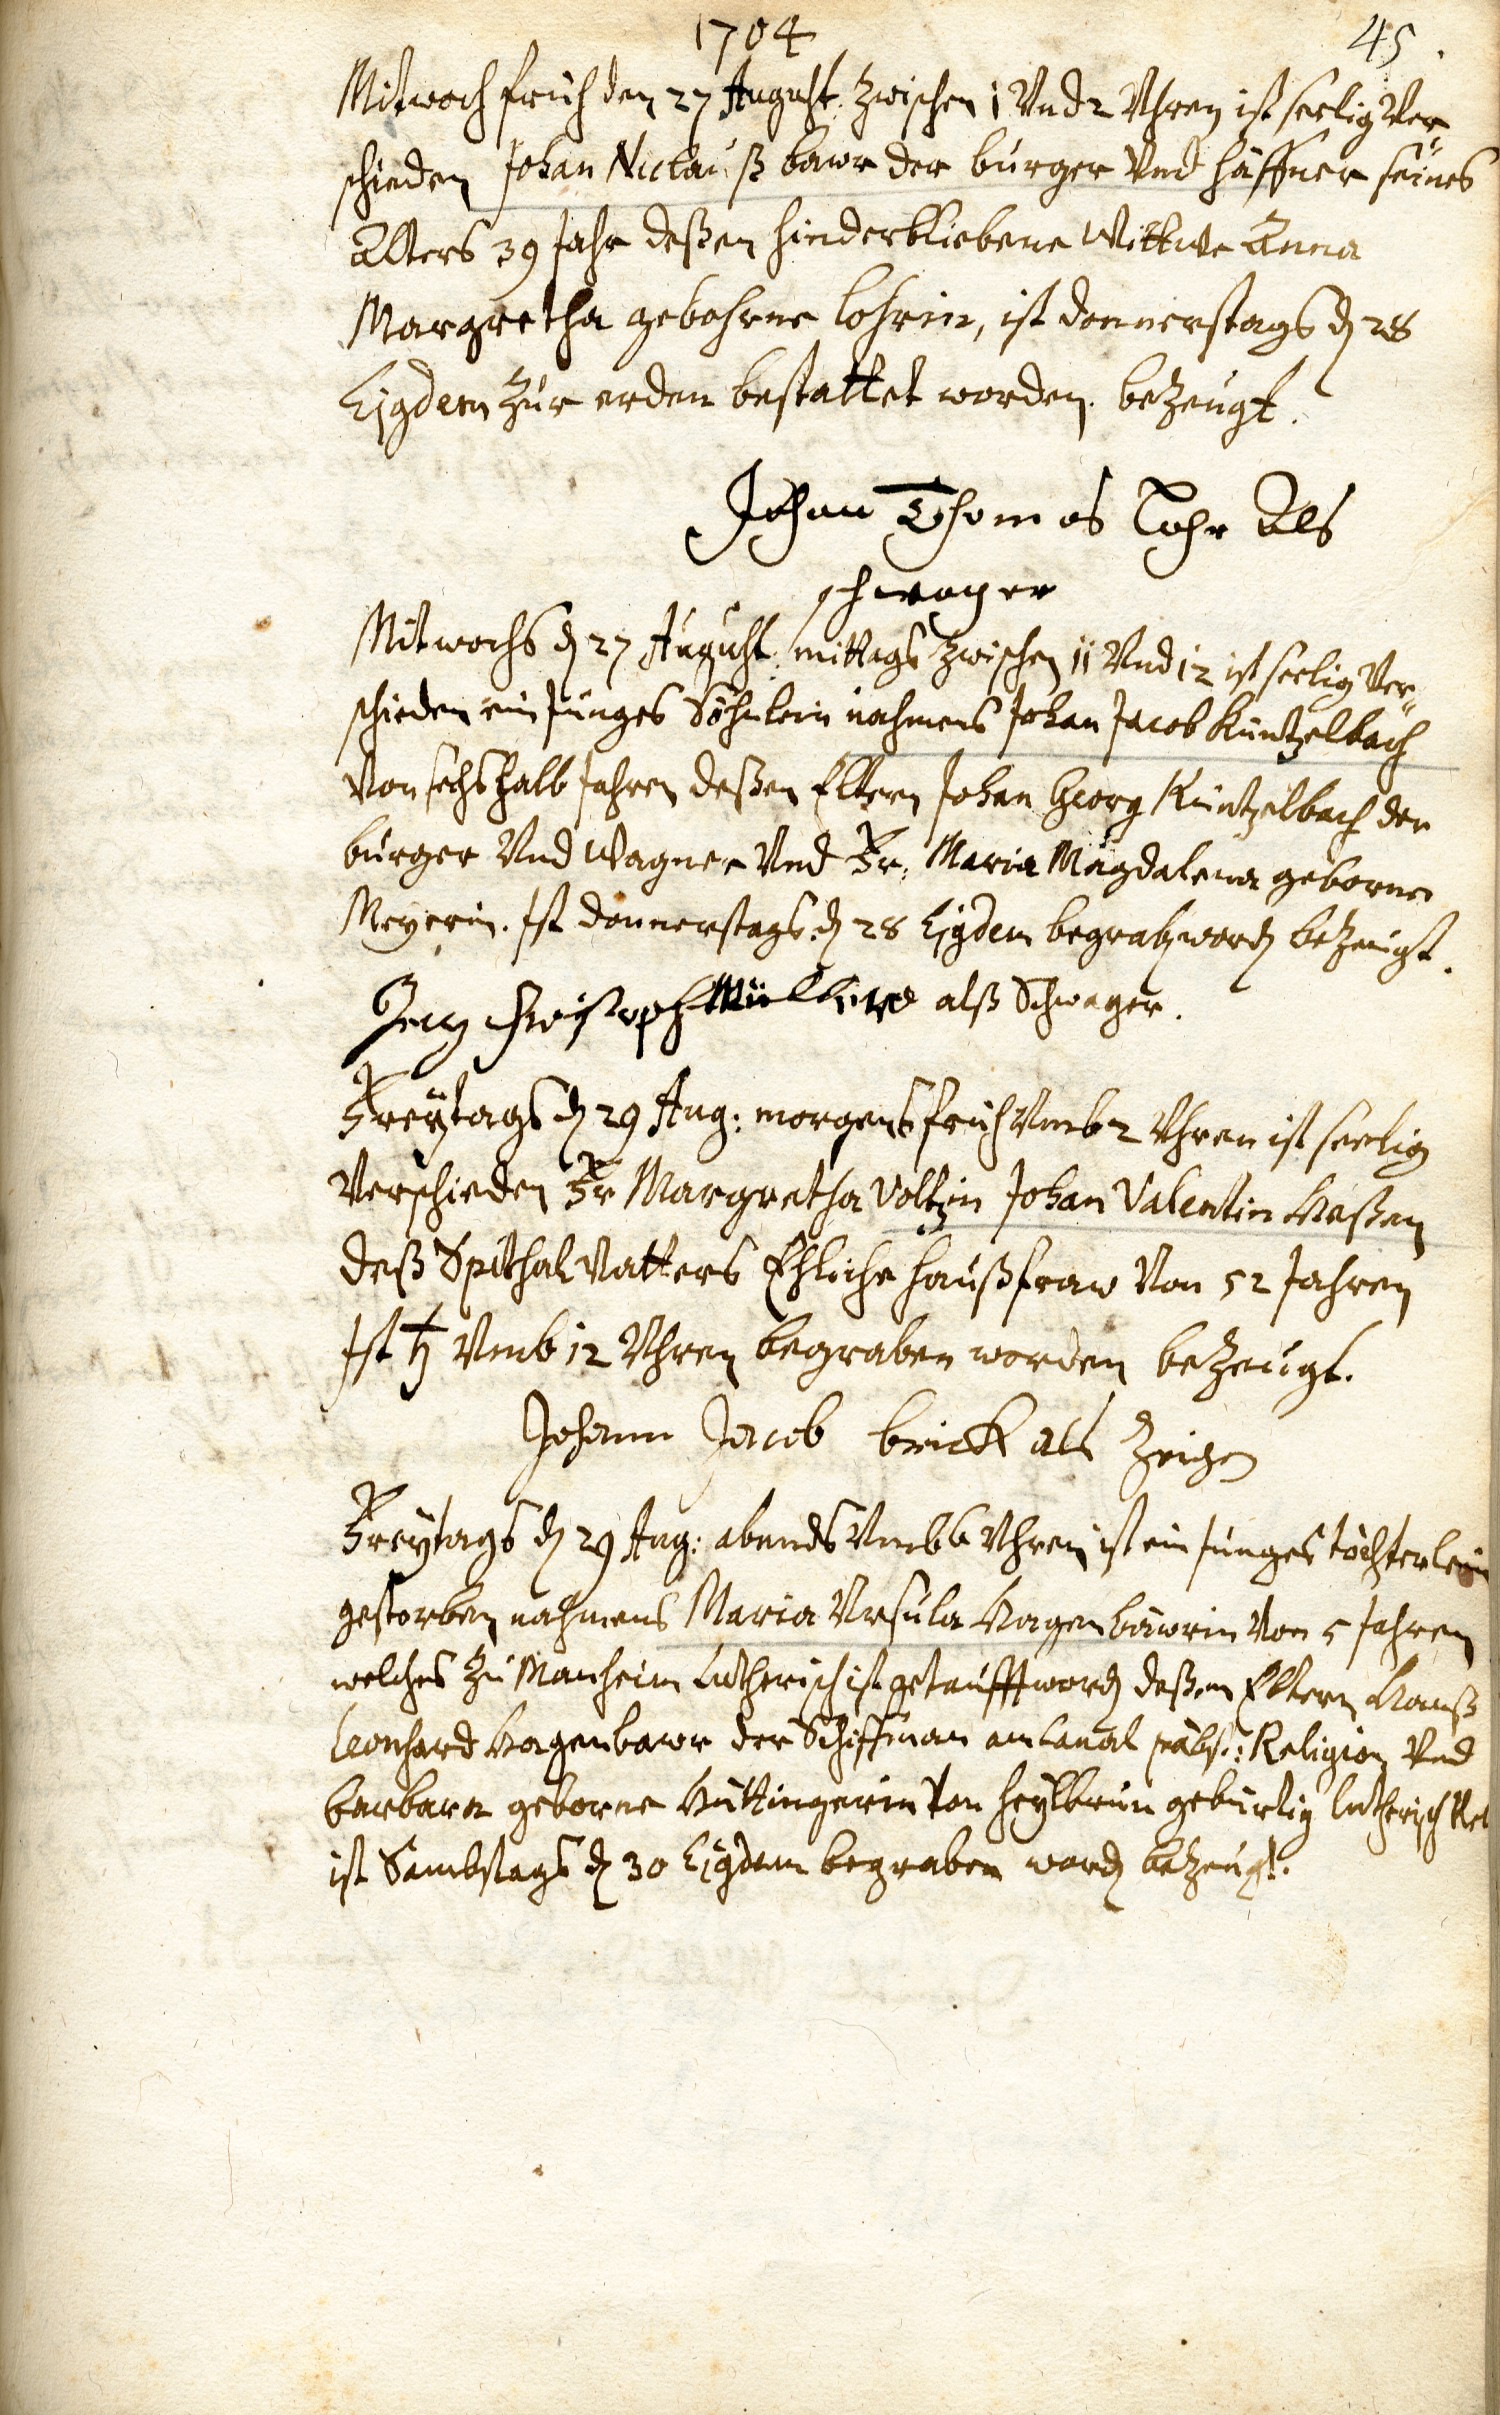 1704
45.
Mitwoch früh den 27 August: zwischen 1 Vnd 2 Vhren ist seelig Ver„
schieden Johan Niclauß bawr der bürger Vnd häffner seines
Alters 39 Jahr deßen hinderbliebene Wittwe Anna
Margretha gebohrne Lohrin, ist donnerstags d 28
Ejgdem zur erden bestattet worden. bezeugt.
Johan Thomas Lohr Als
schwager
Mitwochs d 27 August: mittags zwischen 11 Vnd 12 ist seelig Ver„
schieden ein junges Söhnlein nahmens Johan Jacob Küntzelbach
Von sechshalb Jahren deßen Eltern Johan Georg Küntzelbach der
bürger Vnd Wagner Vnd Fr: Maria Magdalena geborne
Meyerin. Ist donnerstags d 28 Ejgdem begrab word bezeugt.
Christoph Müller alß Schwager.
Freytags d 29 Aug: morgens früh Vmb 2 Vhren ist seelig
Verschieden Fr Margretha Voltzin Johan Valentin Haßen
deß Spithal Vatters Ehliche haußfraw Von 52 Jahren
Ist ♄ Vmb 12 Vhren begraben worden bezeugt.
Johann Jacob brick als Zeuge
Freytags d 29 Aug: abends Vmb 6 Vhren ist ein junges töchterlein
gestorben nahmens Maria Vrsula Hagenbäwrin Von 5 Jahren
welches zu Manheim Lutherisch ist getaufft word deßen Eltern Hanß
Leonhard Hagenbawr der Schiffman am Canal päbs: Religion Vnd
barbara geborne Hüttingerin Von heylbrun gebürtig Lutherisch Rel
ist Sambstags d 30 Ejgdem begraben word bezeugt.